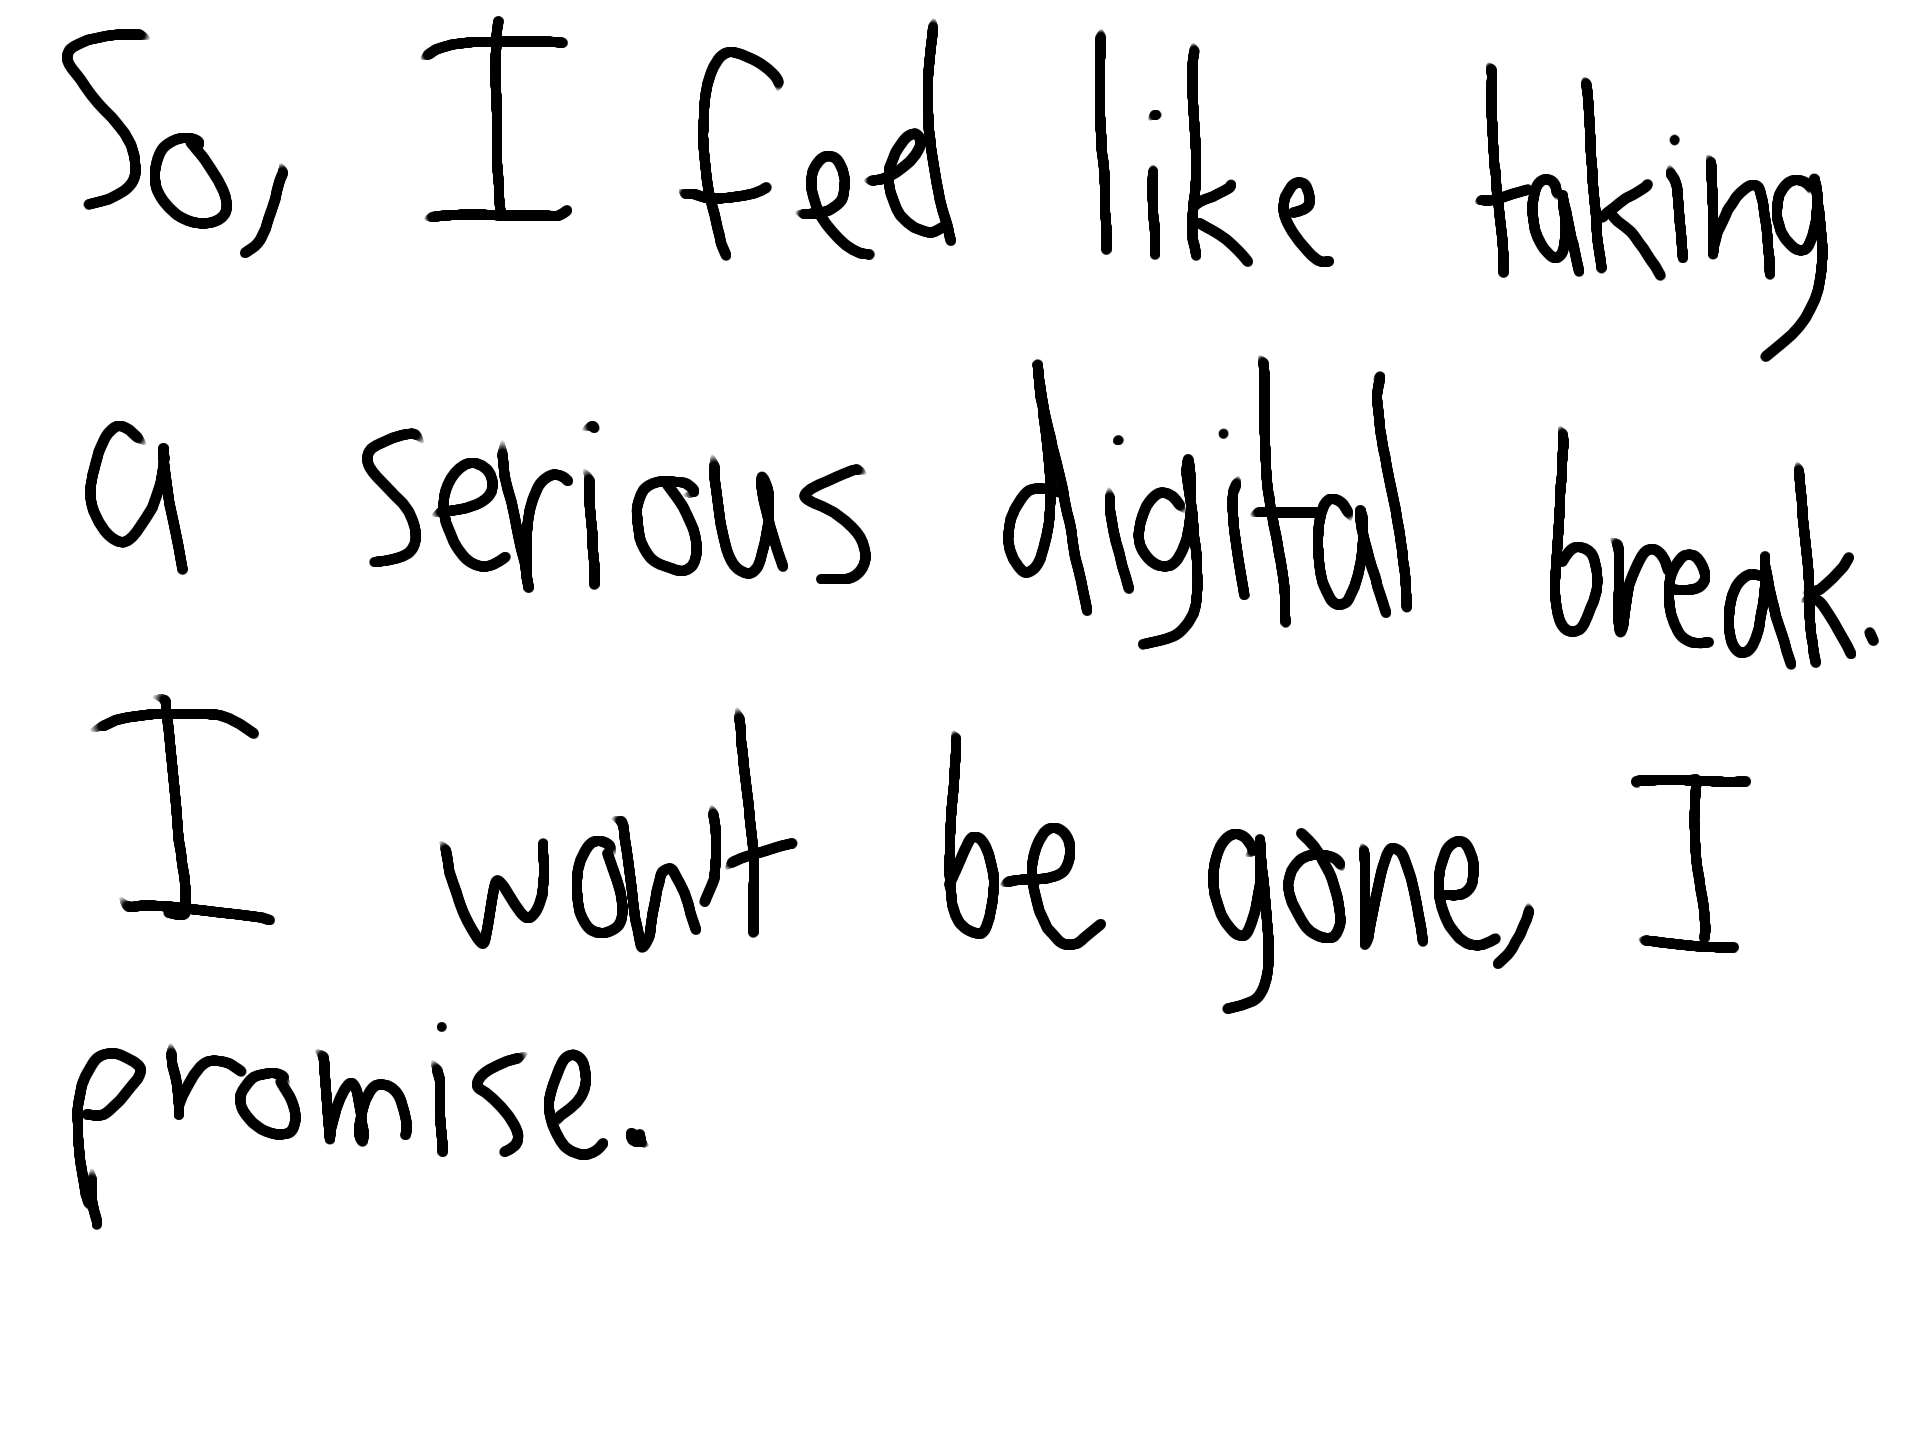 So, I feel like taking
a serious digital break.
I won't be gone, I
promise.